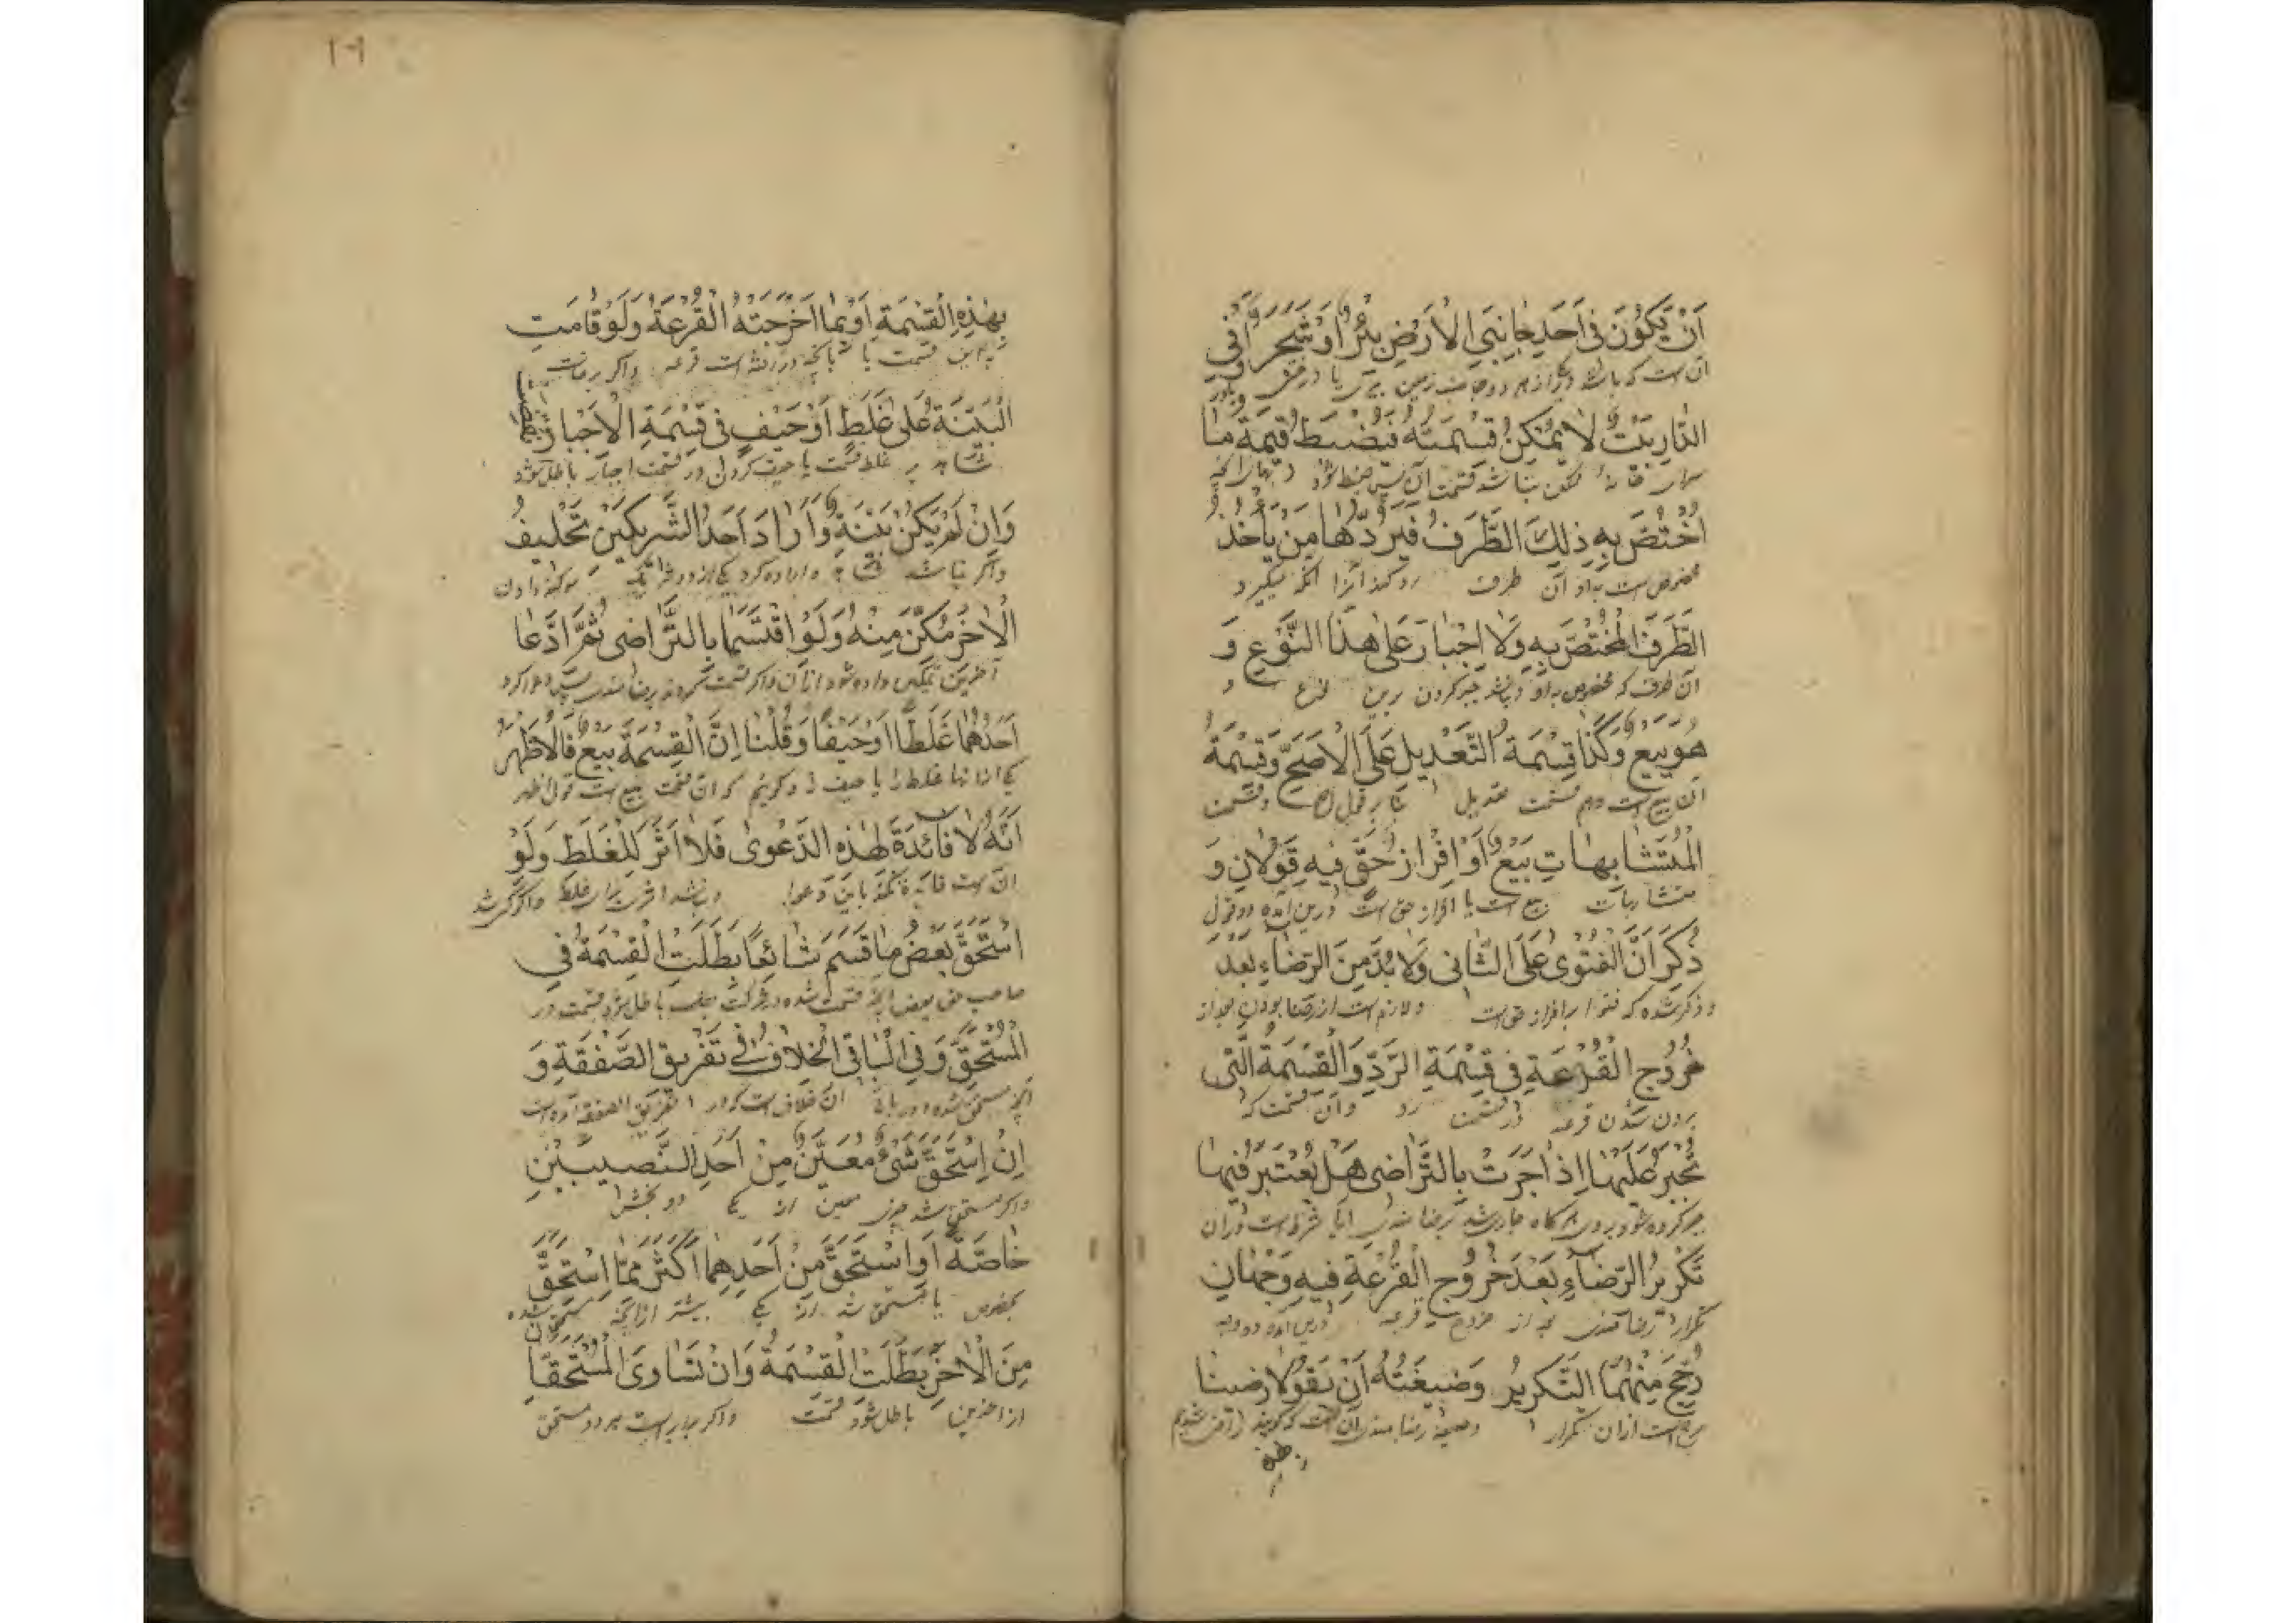 اَنْ يَكُوْنَ فِى اَحَدِ جٰانِبَىِ الْاَرْضِ بِئْرٌ اَوْ شَجَرٌ اَوْ فِى
آن است که باشد یکی از هر دو جانب زمین بیری یا درختی
الدّٰارِ بَيْتٌ لاٰ يُمْكِنُ قِسْمَتُهُ فَيُضْبَطُ قِيْمَةُ مٰا
سرای خانهٔ ممکن نباشد قسمت آن پس ضبط شود
اُخْتُصَّ بِهِ ذٰلِكَ الطَّرَفُ فَيَرُدُّهٰا مَنْ يَاْخُذُ
مخصوص است به او آن طرف رد کند آنرا آنکه میگیرد
الطَّرَفَ الْمُخْتَصَّ بِهِ وَلاٰ اِجْبٰارَ عَلٰى هٰذَا النَّوْعِ وَ
آن طرف که مخصوص به او و نباشد جبر کردن برین نوع و
هُوَ بَيْعٌ وَكَذٰا قِسْمَةُ التَّعْدِيلِ عَلَى الْاَصَحِّ وَقِسْمَةُ
آن بیع است و هم قسمت تعدیل بنا بر قول اصح و قسمت
الْمُتَشٰابِهٰاتِ بَيْعٌ اَوْ اِفْرٰازُ حَقٍّ فِيهِ قَوْلاٰنِ وَ
متشابهات بیع است یا افراز حق است درین آمده دو قول
ذُكِرَ اَنَّ الْفَتْوٰى عَلَى الثّٰانِى وَلاٰ بُدَّ مِنَ الرِّضٰاءِ بَعْدَ
و ذکر شده که فتوا بر افراز حق است و لازم است از رضا بودن بعد از
خُرُوجِ الْقُرْعَةِ فِى قِسْمَةِ الرَّدِّ وَالْقِسْمَةُ الَّتِى
برون شدن قرعه در قسمت رد و آن قسمت که
تُجْبَرُ عَلَيْهٰا اِذٰا جَرَتْ بِالتَّرٰاضِى هَلْ يُعْتَبَرُ فِيهٰا
جبر کرده شود بر وی هرگاه جاری شد برضامندی آیا شرط است در آن
تَكْرِيرُ الرِّضٰاءِ بَعْدَ خُرُوجِ الْقُرْعَةِ فِيهِ وَجْهٰانِ
تکرار رضامندی بعد از خروج قرعه درین آمده دو وجه
رُجِّحَ مِنْهُمَا التَّكْرِيرُ وَصِيغَتُهُ اَنْ يَقُوْلاٰ رَضِينٰا
است از آن تکرار وصیغهٔ رضامندی آن است که گویند راضی شدیم
١٠٦
بِهٰذِهِ الْقِسْمَةِ اَوْ بِمٰا اَخْرَجَتْهُ الْقُرْعَةُ وَلَوْ قٰامَتِ
به این قسمت یا بآنچه قرعه و اگر برخاست
الْبَيِّنَةُ عَلٰى غَلَطٍ اَوْ حَيْفٍ فِى قِسْمَةِ الْاِجْبٰارِ نُقِضَتْ
شاهد بر غلط قسمت یا حیف کردن در قسمت اجبار باطل شود
وَاِنْ لَمْ يَكُنْ بَيِّنَةٌ وَاَرٰادَ اَحَدُ الشَّرِيكَيْنِ تَحْلِيفَ
و اگر نباشد شاهد و اراده کرد یکی از دو شریک سوگند دادن
الْاٰخَرِ مُكِّنَ مِنْهُ وَلَوِ اقْتَسَمٰا بِالتَّرٰاضِى ثُمَّ ادَّعٰا
آخرین تمکین داده شود از آن و اگر قسمت کردند برضامندی پس دعوا کرد
اَحَدُهُمٰا غَلَطًا اَوْ حَيْفًا وَقُلْنٰا اِنَّ الْقِسْمَةَ بَيْعٌ فَالْاَظْهَرُ
یکی از آنها غلط را یا حیف را و گوئیم که آن قسمت بیع است قول اظهر
اَنَّهُ لاٰ فٰائِدَةَ لِهٰذِهِ الدَّعْوٰى فَلاٰ اَثَرَ لِلْغَلَطِ وَلَوِ
آن است فایده نکند باین دعوا و نباشد اثری برای غلط و اگر
اسْتُحِقَّ بَعْضُ مٰا قَسَمَ شٰائِعًا بَطَلَتِ الْقِسْمَةُ فِى
صاحب حق بعض آنچه قسمت شده باطل شود قسمت در
الْمُسْتَحَقِّ وَفِى الْبٰاقِى الْخِلاٰفُ فِى تَفْرِيقِ الصَّفْقَةِ وَ
آنچه مستحق شده و در باقی آن خلاف است که در تفریق الصفقه آمده است
اِنْ اِسْتُحِقَّ شَىْءٌ مُعَيَّنٌ مِنْ اَحَدِ النَّصِيبَيْنِ
و اگر مستحق شد چیزی معین از یکی دو بخش
خٰاصَّةً اَوِ اسْتُحِقَّ مِنْ اَحَدِهِمٰا اَكْثَرُ مِمَّا اسْتُحِقَّ
بخصوص یا مستحق شد از یکی بیشتر از آنچه مستحق شده
مِنَ الْاٰخَرِ بَطَلَتِ الْقِسْمَةُ وَاِنْ تَسٰاوَى الْمُسْتَحَقّٰانِ
از آخرین باطل شود قسمت و اگر برابر است هر دو مستحق